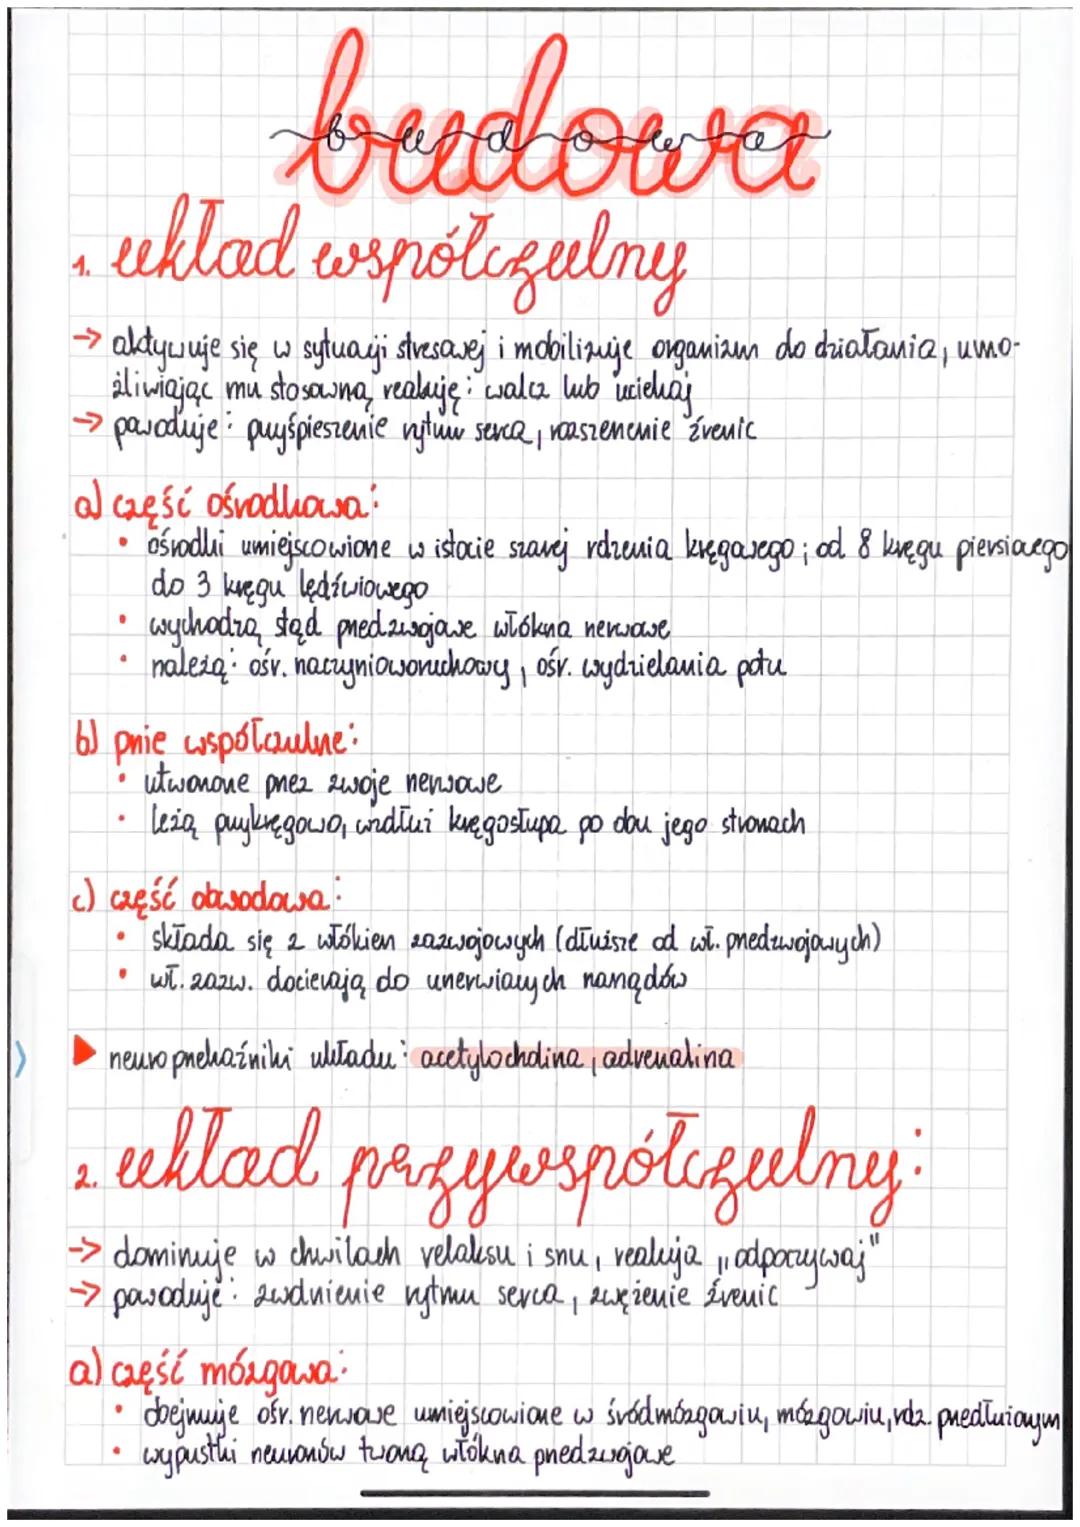 budowa
budowa
1. układ współczulny
→ aktywuje się w sytuacji stresowej i mobilizuje organizm do działania, umo-
żliwiając mu stosowną reakcję: walcz lub uciekaj
→ powoduje: przyśpieszenie rytmu serca, rozszerzenie źrenic
a) część ośrodkowa:
• ośrodki umiejscowione w istocie szarej rdzenia kręgowego; od 8 kręgu piersiowego
do 3 kręgu lędźwiowego
• wychodzą stąd przedzwojowe włókna nerwowe
• należą: ośr. naczynioworuchowy, ośr. wydzielania potu
b) pnie współczulne:
• utworzone przez zwoje nerwowe
• leżą przykręgowo, wzdłuż kręgosłupa po obu jego stronach
c) część obwodowa:
• składa się z włókien zazwojowych (dłuższe od wł. przedzwojowych)
• wł. zazw. docierają do unerwiających narządów
▶ neuroprzekaźniki układu: acetylocholina, adrenalina
2. układ przywspółczulny:
→ dominuje w chwilach relaksu i snu, reakcja „odpoczywaj"
→ powoduje: zwolnienie rytmu serca, zwężenie źrenic
a) część mózgowa:
• obejmuje ośr. nerwowe umiejscowione w śródmózgowiu, mózgowiu, rdz. przedłużonym
• wypustki neuronów tworzą włókna przedzwojowe